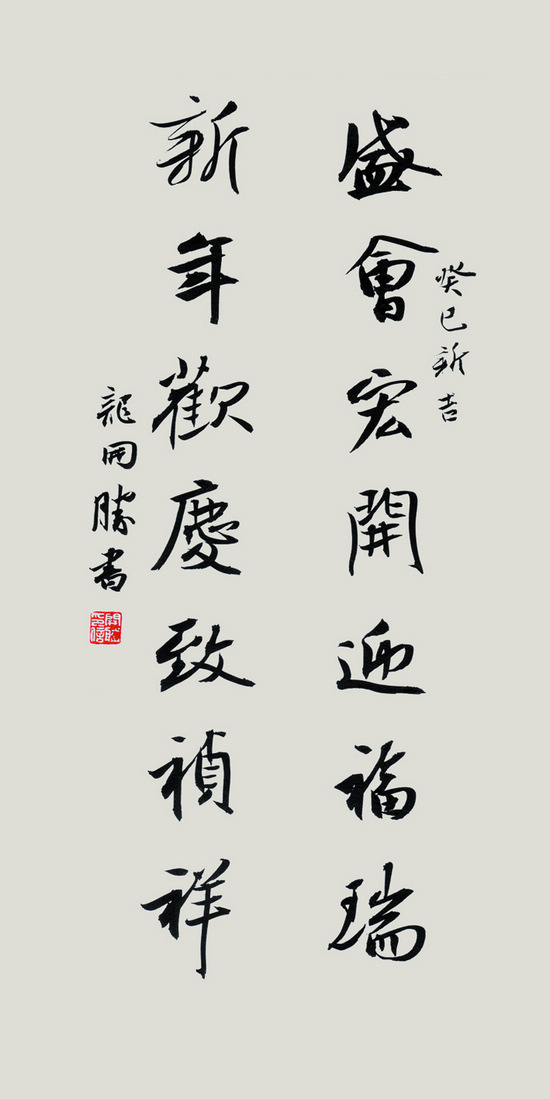 癸巳新吉
盛會宏開迎福瑞
新年歡慶致禎祥
龍開勝書